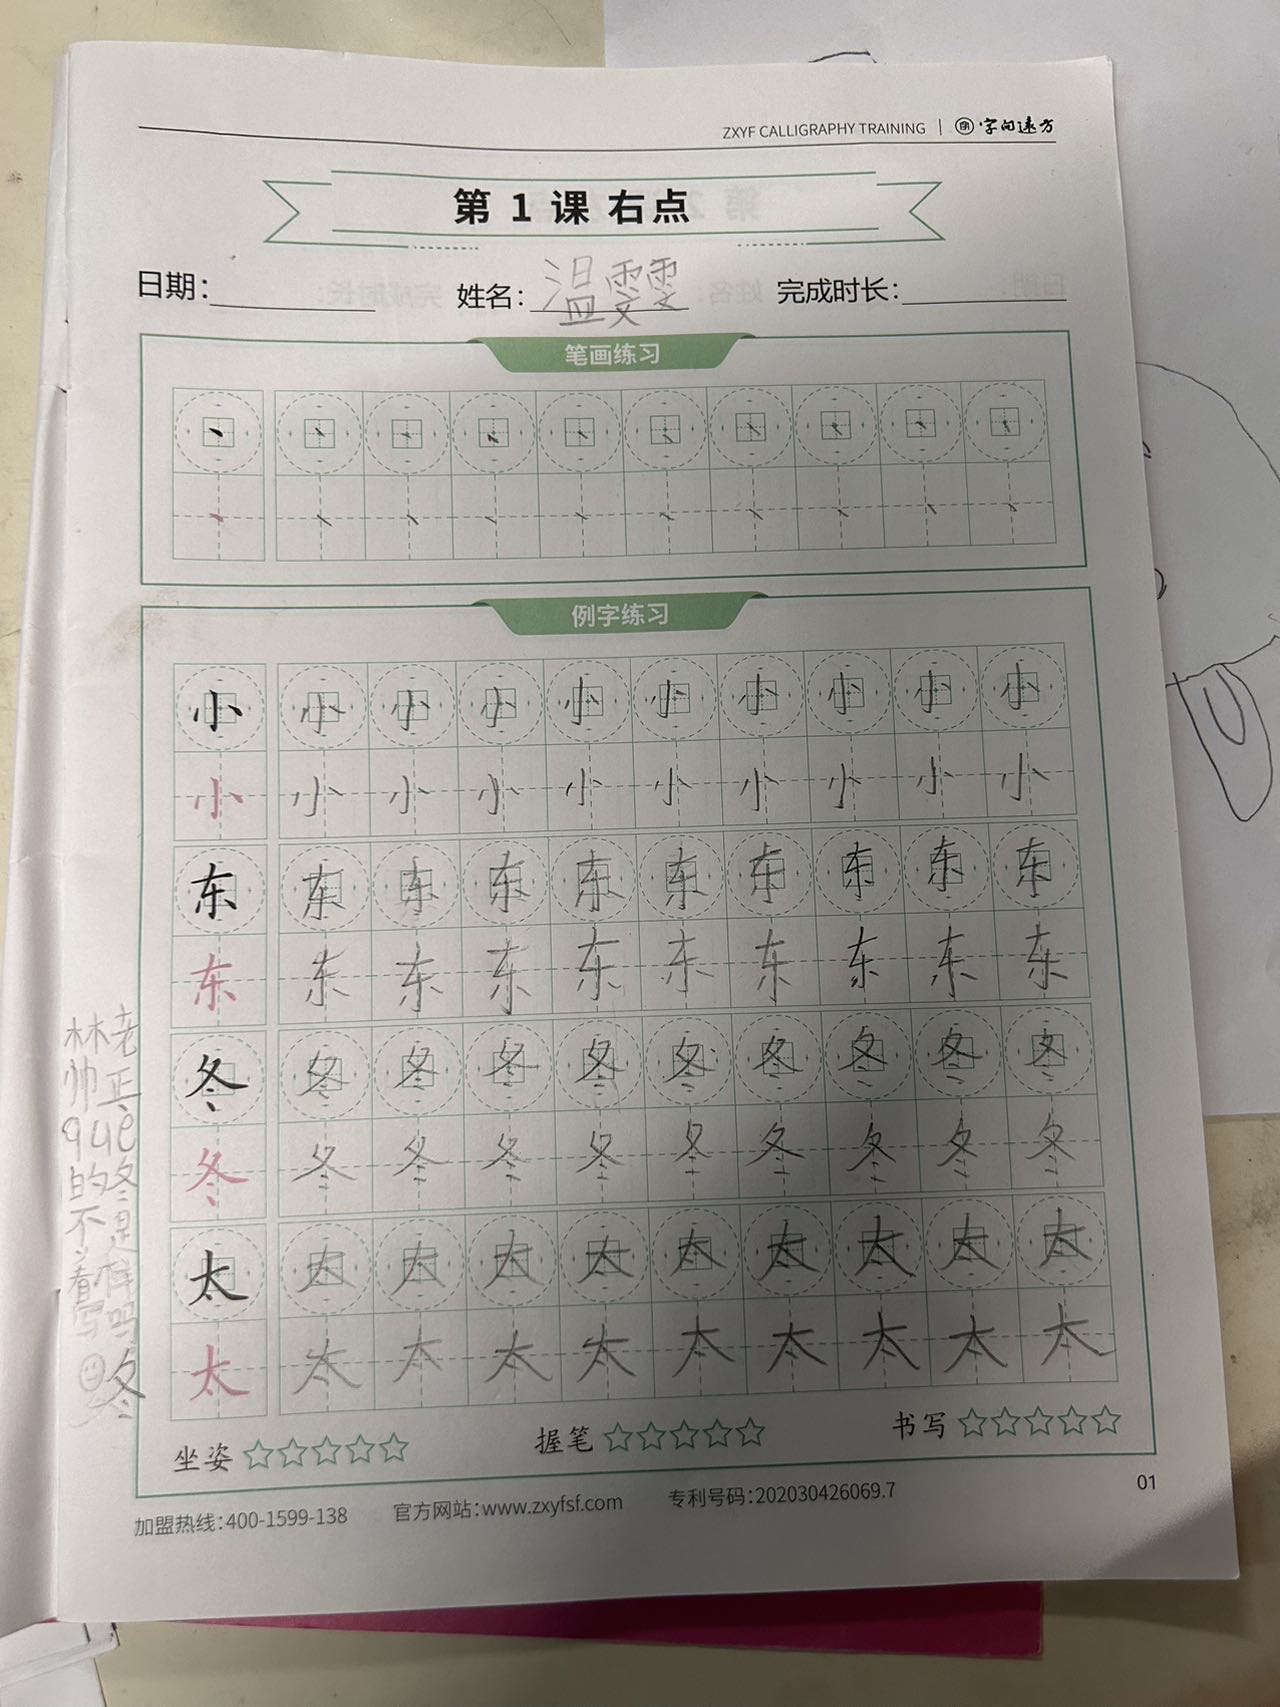 ZXYF CALLIGRAPHY TRAINING | 字向远方
第 1 课 右点
日期: 姓名: 温雯雯 完成时长:
笔画练习
例字练习
小 小 小 小 小 小 小 小 小 小
小 小 小 小 小 小 小 小 小 小
东 东 东 东 东 东 东 东 东 东
东 东 东 东 东 东 东 东 东 东
冬 冬 冬 冬 冬 冬 冬 冬 冬 冬
冬 冬 冬 冬 冬 冬 冬 冬 冬 冬
太 太 太 太 太 太 太 太 太 太
太 太 太 太 太 太 太 太 太 太
林老
帅正
que
的冬
不是
看样
写吗
冬
坐姿 ☆☆☆☆☆ 握笔 ☆☆☆☆☆ 书写 ☆☆☆☆☆
加盟热线:400-1599-138 官方网站:www.zxyfsf.com 专利号码:202030426069.7
01